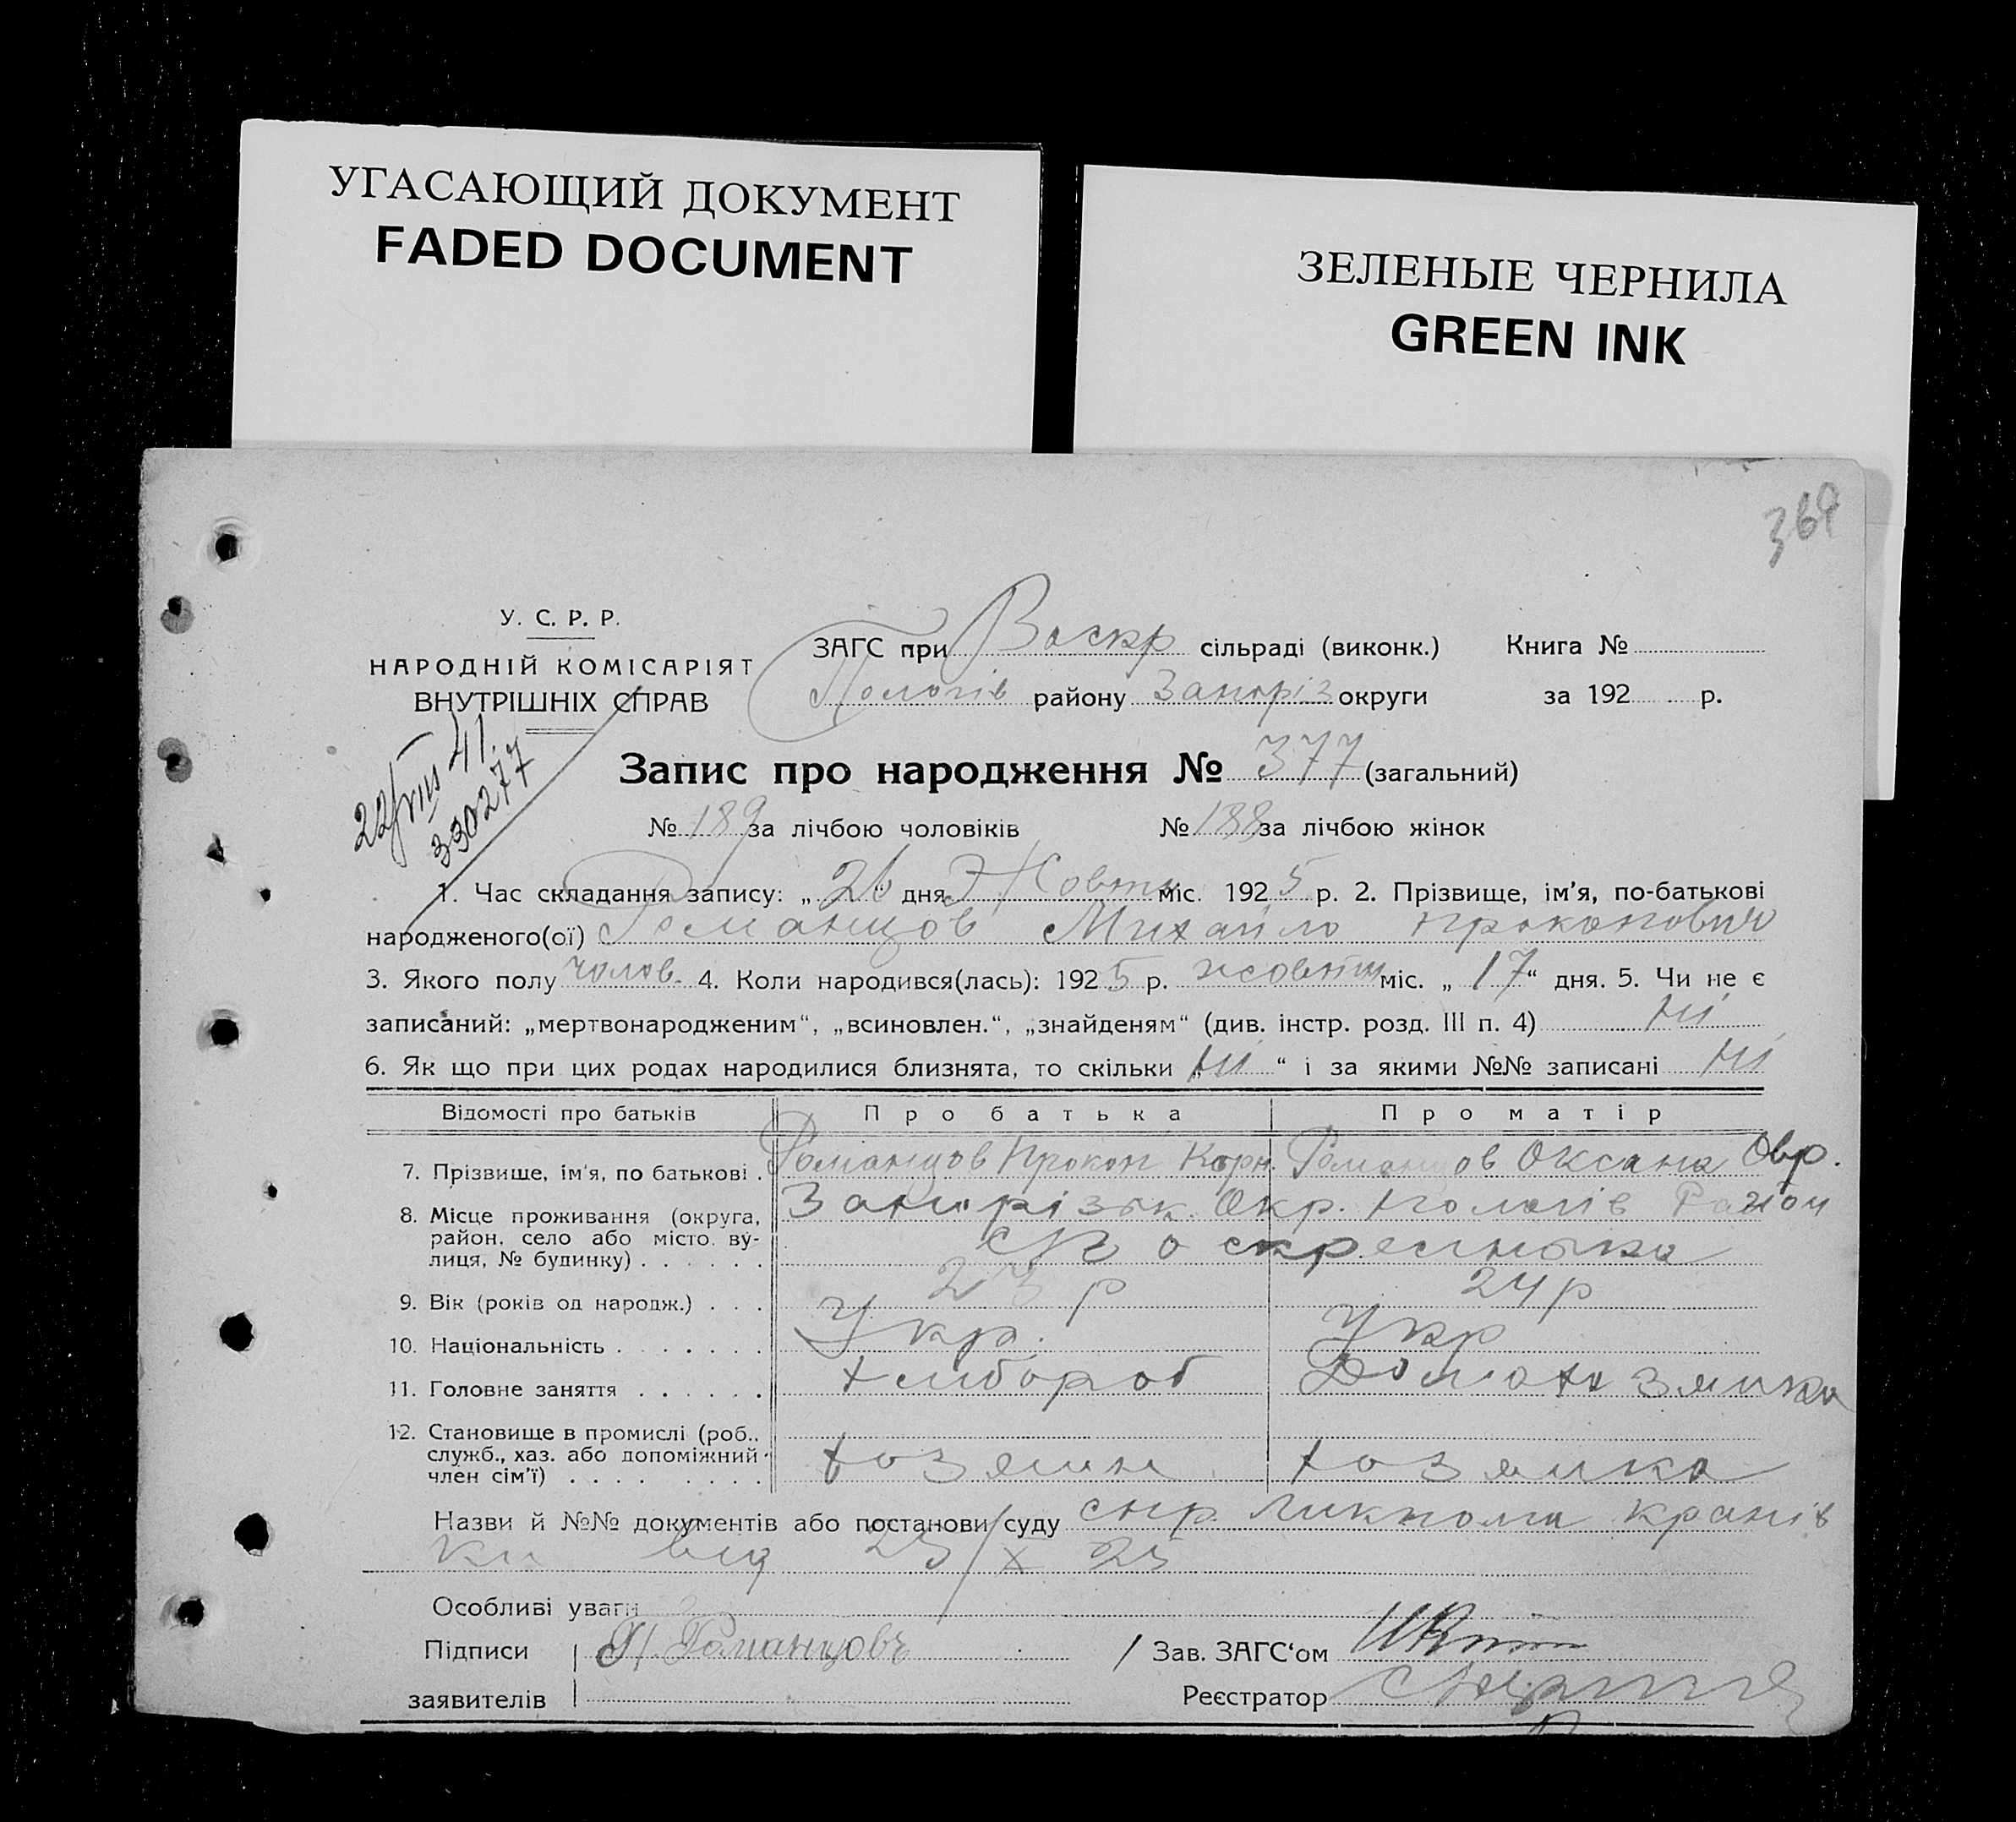 УГАСАЮЩИЙ ДОКУМЕНТ
FADED DOCUMENT
ЗЕЛЕНЫЕ ЧЕРНИЛА
GREEN INK
369
У. С. Р. Р.
НАРОДНІЙ КОМІСАРІЯТ
ВНУТРІШНІХ СПРАВ
ЗАГС при Воскр сільраді (виконк.) Книга №
Пологів району Запоріз округи за 192 р.
22/VIII 41.
330277
Запис про народження № 377 (загальний)
№ 189 за лічбою чоловіків № 188 за лічбою жінок
1. Час складання запису: „ 26 " дня Жовтн міс. 1925 р. 2. Прізвище, ім'я, по-батькові
народженого(ої) Романцов Михайло Прокопович
3. Якого полу чолов. 4. Коли народився(лась): 1925 р. жовтн міс. „ 17 " дня. 5. Чи не є
записаний: „мертвонародженим", „всиновлен.", „знайденям" (див. інстр. розд. III п. 4) ні
6. Як що при цих родах народилися близнята, то скільки „ ні " і за якими №№ записані ні
Відомості про батьків Про батька Про матір
7. Прізвище, ім'я, по батькові . Романцов Прокоп Корн. Романцов Оксана Овр.
8. Місце проживання (округа, район, село або місто, ву-лиця, № будинку) . . . . . . Запорізьк. Окр. Пологів Район
9. Вік (років од народж.) . . . 23 р 24 р
10. Національність . . . . . . . Укр. Укр
11. Головне заняття . . . . . . хлібороб
12. Становище в промислі (роб., служб., хаз. або допоміжний член сім'ї) . . . . . . . . . хозяин хозяика
Назви й №№ документів або постанови суду
від 25/X 25
Особливі уваги
Підписи П. Романцовъ Зав. ЗАГС'ом
заявителів Реєстратор